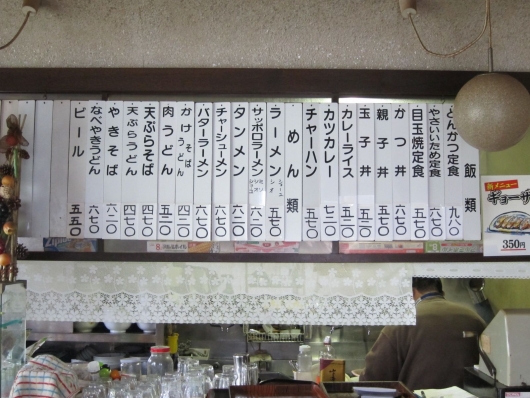 飯類
とんかつ定食 九八〇
やさいいため定食 六七〇
目玉焼定食 五七〇
かつ丼 六七〇
親子丼 五七〇
玉子丼 五二〇
カレーライス 五二〇
カツカレー 七二〇
チャーハン 五七〇
めん類
ラーメン 五七〇
サッポロラーメン 六二〇
タンメン 六七〇
チャーシューメン 六七〇
バターラーメン 六七〇
かけそばうどん 四二〇
肉うどん 五二〇
天ぷらそば 四七〇
天ぷらうどん 四七〇
やきそば 六二〇
なべやきうどん 六七〇
ビール 五五〇
新メニュー
ギョーザ
350円